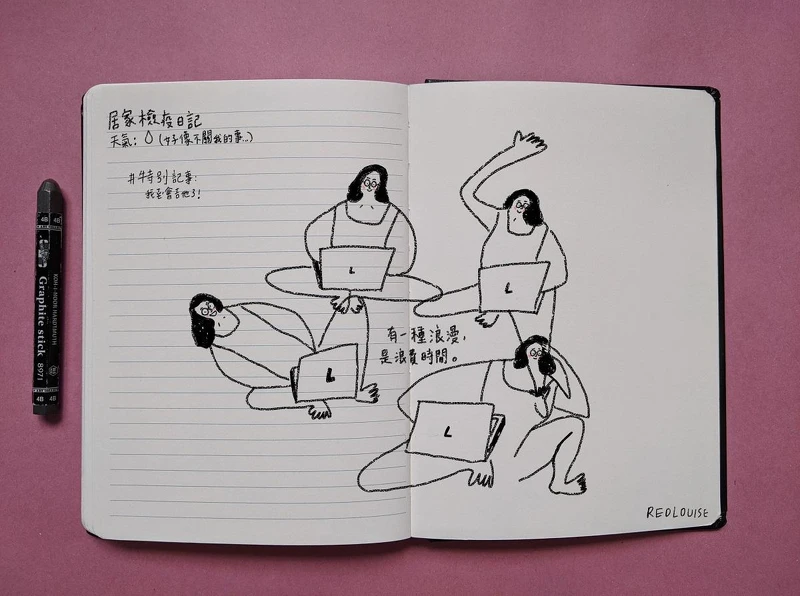 居家檢疫日記
天氣: (好像不關我的事...)
#特別記事:
我還會吉他了!
有一種浪漫,
是浪費時間。
L
L
L
L
REDLOUISE
4B 4B
KOH-I-NOOR HARDTMUTH
Graphite stick
8971
4B 4B